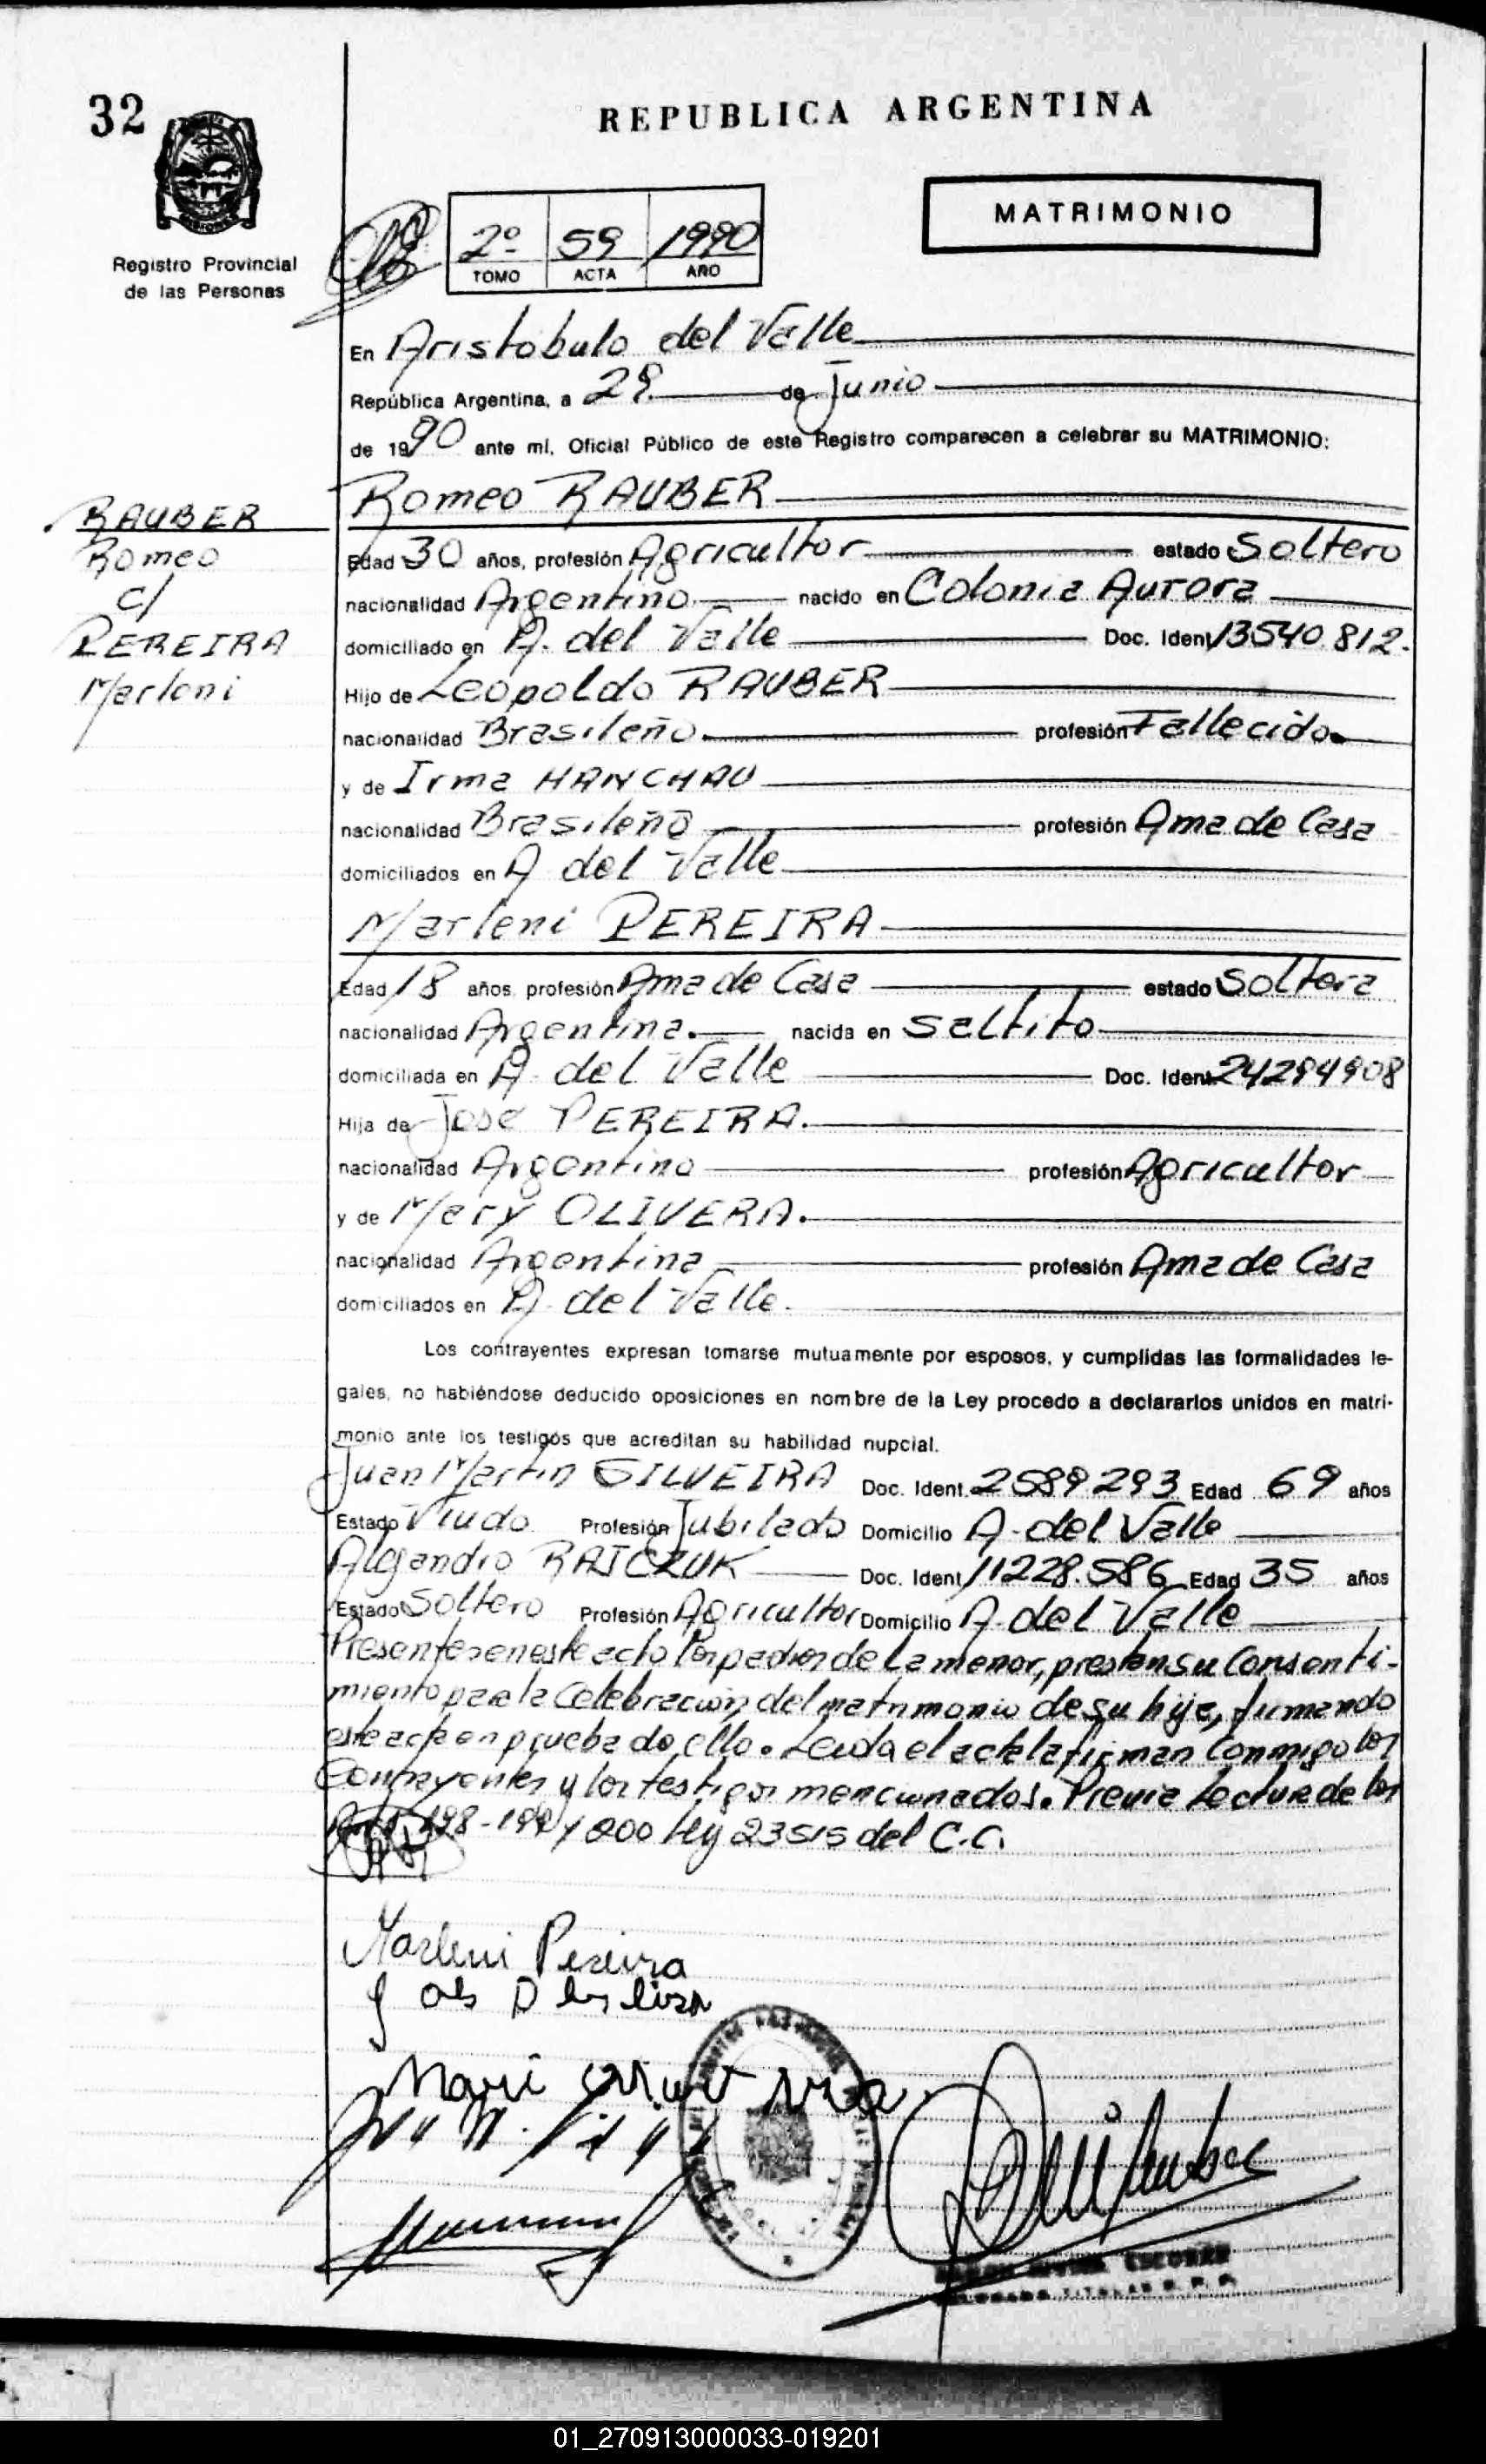 32
REPUBLICA ARGENTINA
MATRIMONIO
Registro Provincial
de las Personas
2º 59 1990
TOMO ACTA AÑO
En Aristobulo del Valle
República Argentina, a 29 de Junio
de 1990 ante mí, Oficial Público de este Registro comparecen a celebrar su MATRIMONIO:
RAUBER
Romeo
c/
PEREIRA
Marleni
Romeo RAUBER
Edad 30 años, profesión Agricultor estado Soltero
nacionalidad Argentino nacido en Colonia Aurora
domiciliado en A. del Valle Doc. Ident. 13540.812.
Hijo de Leopoldo RAUBER
nacionalidad Brasileño profesión Fallecido
y de Irma HANCHAU
nacionalidad Brasileña profesión Ama de Casa
domiciliados en A del Valle
Marleni PEREIRA
Edad 18 años, profesión Ama de Casa estado Soltera
nacionalidad Argentina. nacida en Saltito
domiciliada en A. del Valle Doc. Ident. 24294908
Hija de José PEREIRA.
nacionalidad Argentino profesión Agricultor
y de Mary OLIVERA.
nacionalidad Argentina profesión Ama de Casa
domiciliados en A. del Valle.
Los contrayentes expresan tomarse mutuamente por esposos, y cumplidas las formalidades le-
gales, no habiéndose deducido oposiciones en nombre de la Ley procedo a declararlos unidos en matri-
monio ante los testigos que acreditan su habilidad nupcial.
Juan Martin SILVEIRA Doc. Ident. 2589293 Edad 69 años
Estado Viudo Profesión Jubilado Domicilio A. del Valle
Alejandro RAJCZUK Doc. Ident. 11228.586 Edad 35 años
Estado Soltero Profesión Agricultor Domicilio A. del Valle
Presentes en este acto los padres de la menor, prestan su Consenti-
miento para la Celebración del matrimonio de su hija, firmando
este acta en prueba de ello. Leida el acta la firman Conmigo los
Contrayentes y los testigos mencionados. Previa Lectura de los
Arts 198-199 y 200 Ley 23515 del C.C.
Marleni Pereira
ESCOBAR
01_270913000033-019201